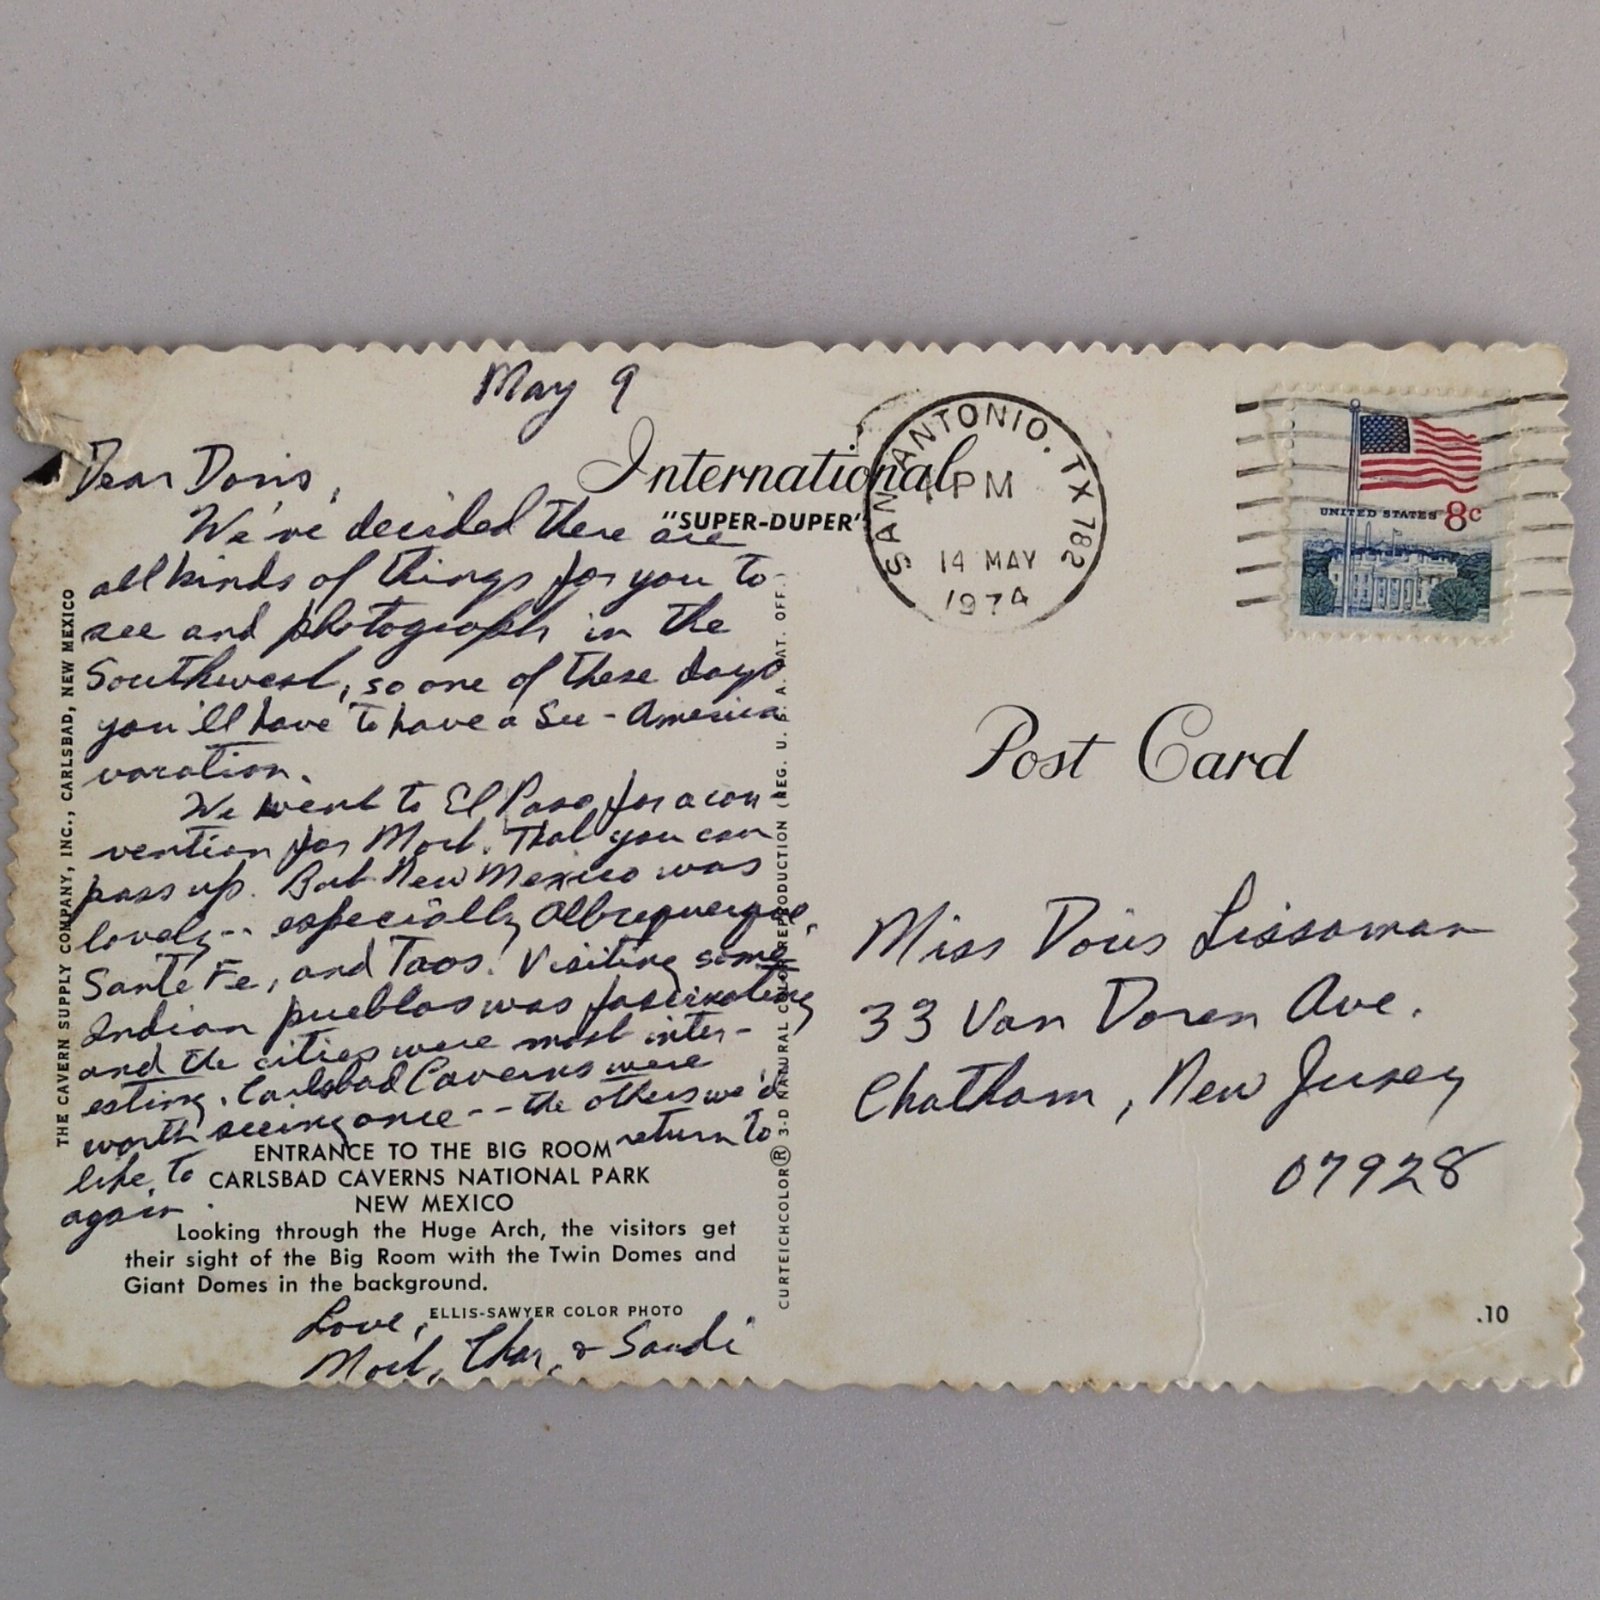 May 9
Dear Doris,
We've decided there are
all kinds of things for you to
see and photograph in the
Southwest, so one of these days
you'll have to have a See-America
vacation.
We went to El Paso for a con-
vention for Mort. That you can
pass up. But New Mexico was
lovely -- especially Albuquerque,
Santa Fe, and Taos. Visiting some
Indian pueblos was fascinating
and the cities were most inter-
esting. Carlsbad Caverns were
worth seeing once -- the others we'd
like to return to
again.
Love,
Mort, Char, & Sandi
THE CAVERN SUPPLY COMPANY, INC., CARLSBAD, NEW MEXICO
International
"SUPER-DUPER"
ENTRANCE TO THE BIG ROOM
CARLSBAD CAVERNS NATIONAL PARK
NEW MEXICO
Looking through the Huge Arch, the visitors get
their sight of the Big Room with the Twin Domes and
Giant Domes in the background.
ELLIS-SAWYER COLOR PHOTO
CURTEICHCOLOR® 3-D NATURAL COLOR REPRODUCTION (REG. U. S. A. PAT. OFF.)
SAN ANTONIO, TX 782
PM
14 MAY
1974
UNITED STATES 8c
Post Card
Miss Doris Lissaman
33 Van Doren Ave.
Chatham, New Jersey
07928
.10